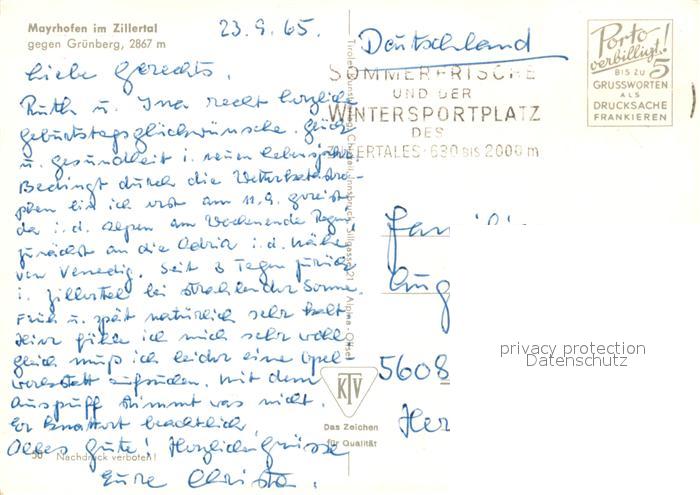 Mayrhofen im Zillertal
gegen Grünberg, 2867 m
23.9.65.
Liebe Gerechts,
Ruth u. Ina recht herzliche
Geburtstagsglückwünsche. Glück
u. Gesundheit i. neuen Lebensjahr.
Bedingt durch die Wetterkatastro-
phen bin ich erst am 11.9. gereist
da i. d. Alpen am Wochenende Regen,
zunächst an die Adria i. d. Nähe
von Venedig. Seit 3 Tagen zurück
i. Zillertal bei strahlender Sonne.
Früh u. spät natürlich sehr kalt
Hier fühle ich mich sehr wohl
gleich muß ich leider eine Opel
werkstatt aufsuchen. Mit dem
Auspuff stimmt was nicht.
Er knattert beachtlich.
Alles Gute! Herzliche Grüsse
Eure Christa.
50 Nachdruck verboten!
Deutschland
SOMMERFRISCHE
UND DER
WINTERSPORTPLATZ
DES
ZILLERTALES · 630 BIS 2000 m
Porto
verbilligt!
BIS ZU 5
GRUSSWORTEN
ALS
DRUCKSACHE
FRANKIEREN
Fam
Aug
5608
Her
KTV
Das Zeichen
für Qualität
privacy protection
Datenschutz